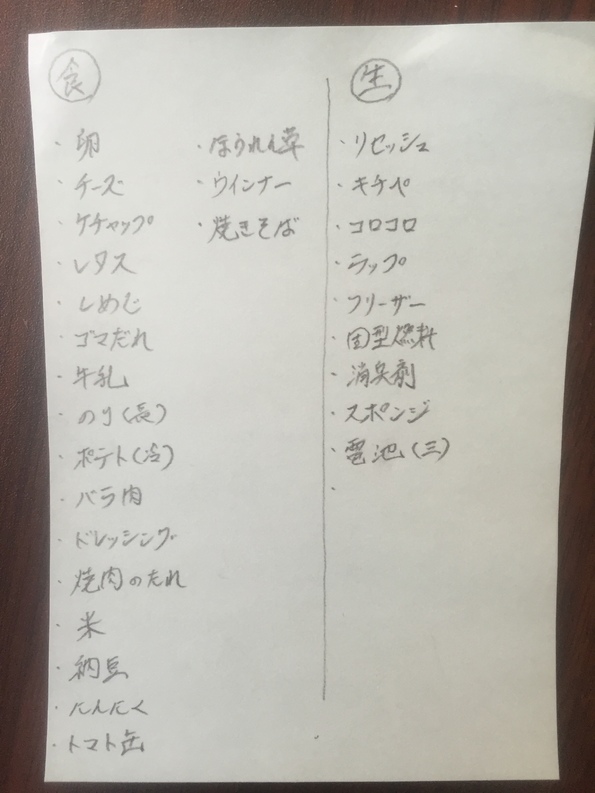 食
・卵
・チーズ
・ケチャップ
・レタス
・しめじ
・ゴマだれ
・牛乳
・のり(長)
・ポテト(冷)
・バラ肉
・ドレッシング
・焼肉のたれ
・米
・納豆
・にんにく
・トマト缶
・ほうれん草
・ウインナー
・焼きそば
生
・リセッシュ
・キチペ
・コロコロ
・ラップ
・フリーザー
・固型燃料
・消臭剤
・スポンジ
・電池(三)
・